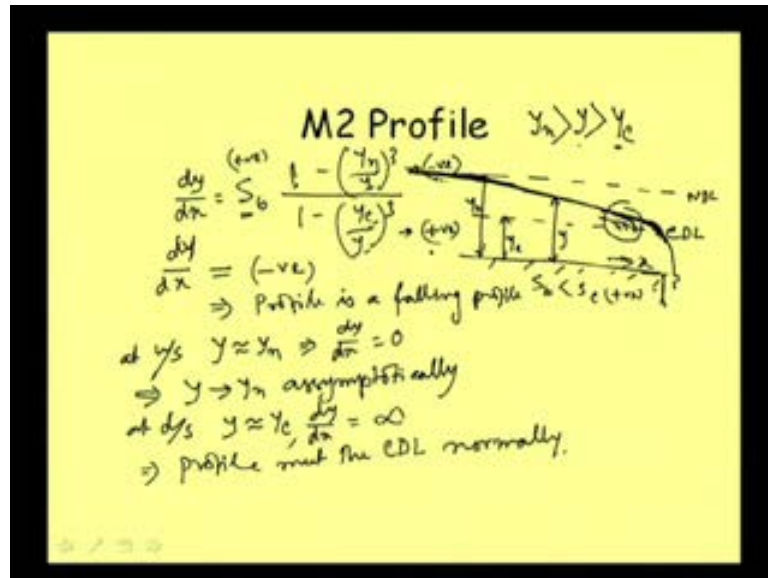 M2 Profile yn > y > yc
dy/dx = Sb (+ve) 1 - (yn/y)³ / 1 - (yc/y)³ → (-ve) → (+ve)
NDL
CDL
yn yc y x
dy/dx = (-ve)
⇒ Profile is a falling profile Sb < Sc (+ve)
at u/s y ≈ yn ⇒ dy/dx = 0
⇒ y → yn assymptotically
at d/s y ≈ yc, dy/dx = ∞
⇒ profile meet the CDL normally.